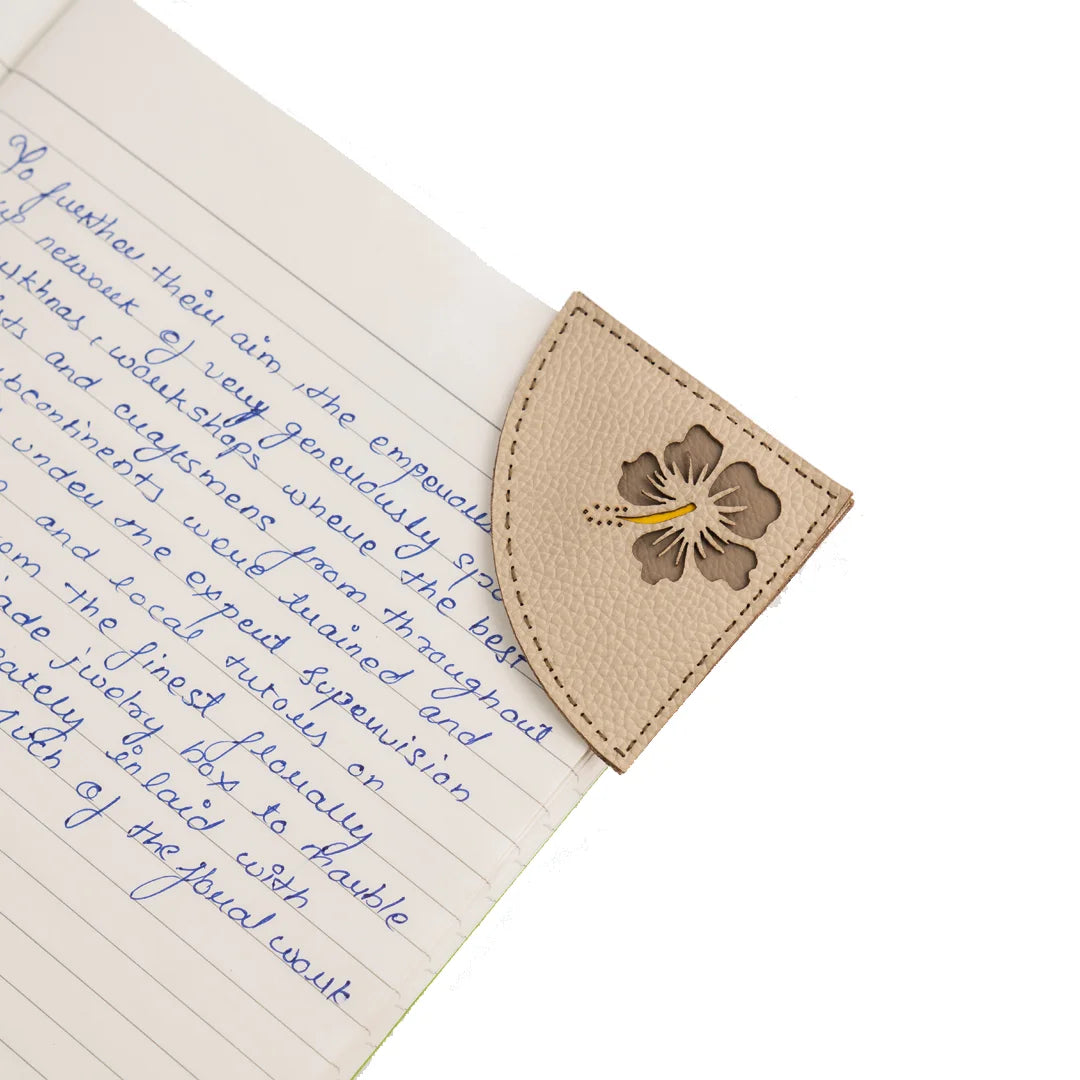 To further their aim, the emperors
up network of very generously spo
rkhnas, workshops where the best
sts and craftsmens from throughout
bcontinents were trained and
under the expert supervision
and local tutors on
om the finest florally
ade jwelry box to marble
ately inlaid with
uch of the floral work